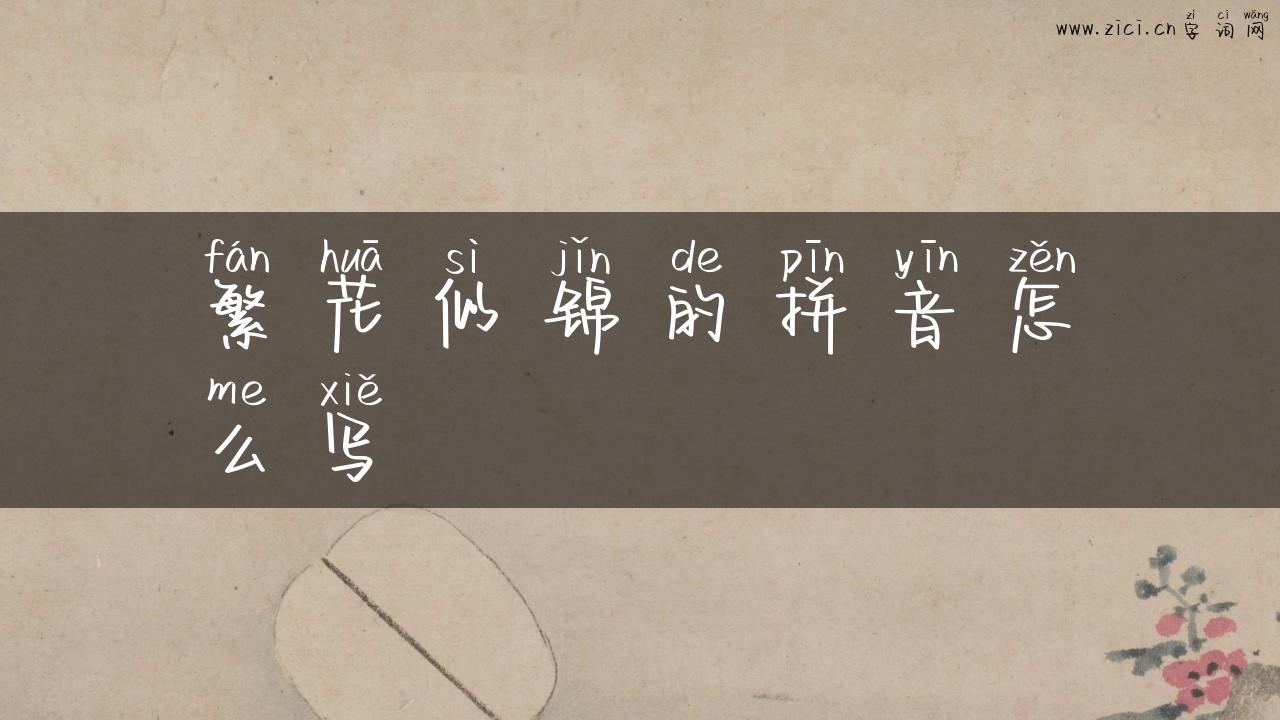 zì cí wǎng
www.zici.cn 字词网
fán huā sì jǐn de pīn yīn zěn
繁花似锦的拼音怎
me xiě
么写